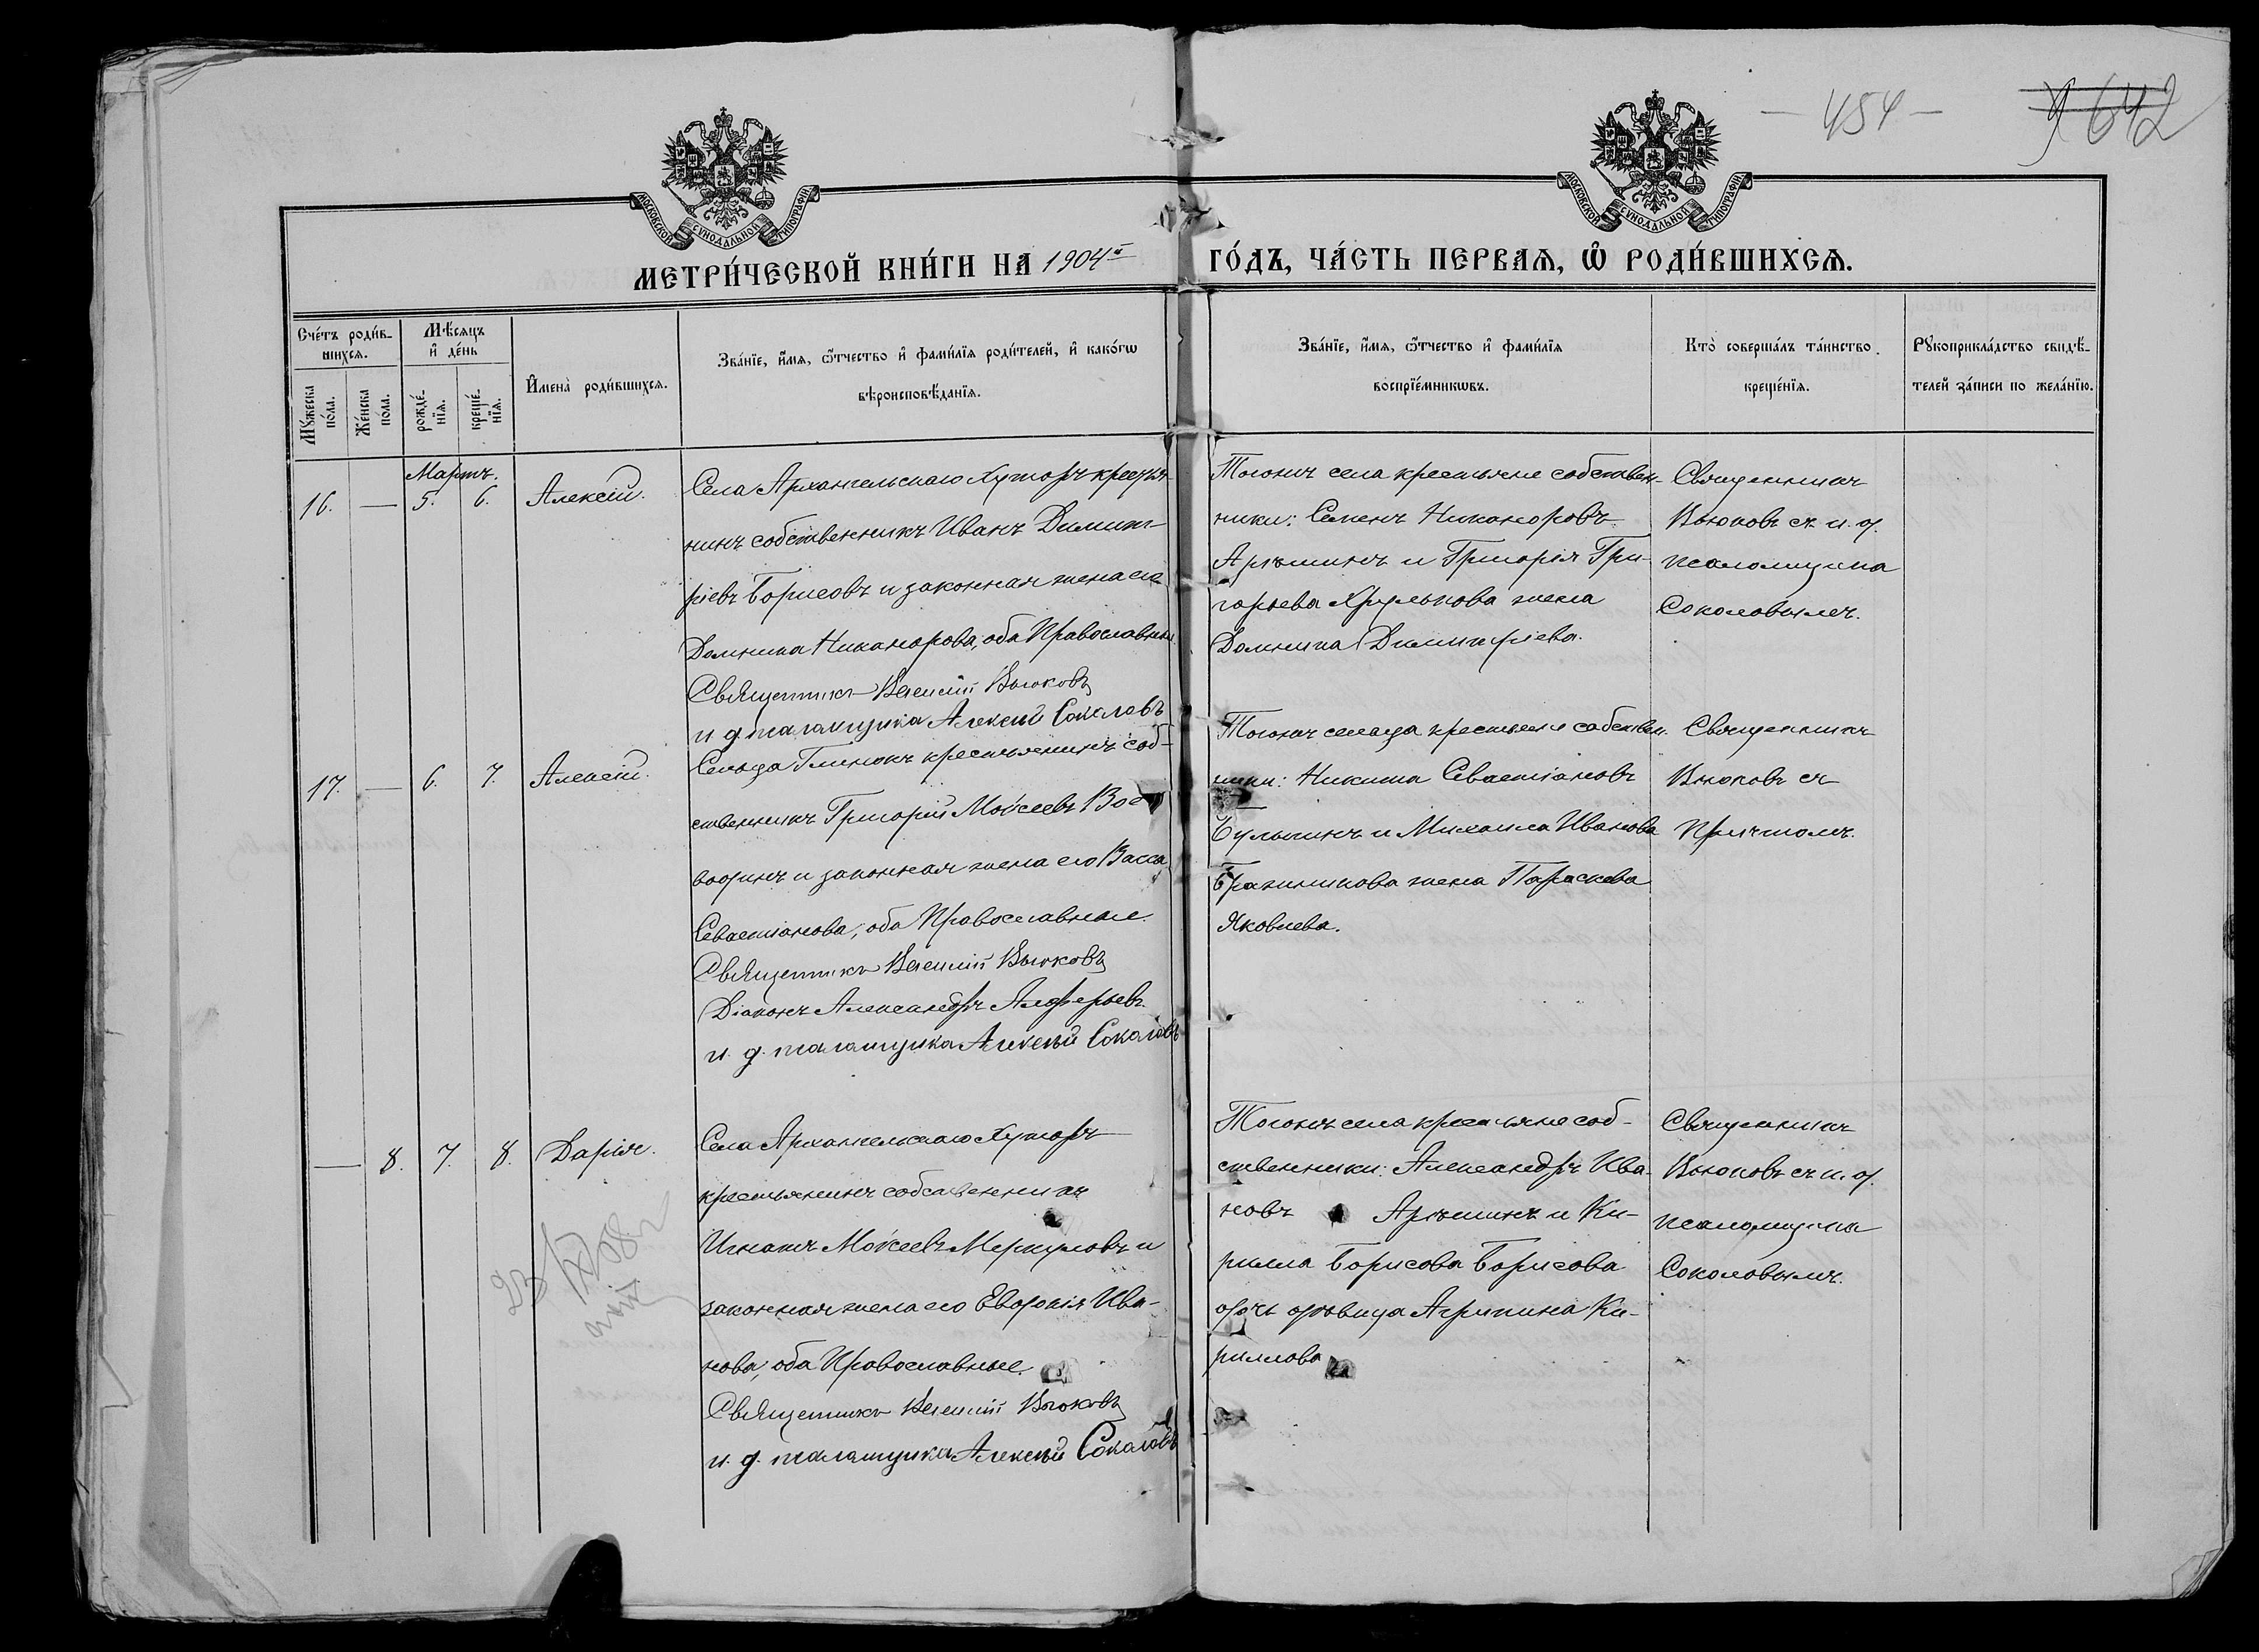 — 454 —
642
МОСКОВСКОЙ СѴНОДАЛЬНОЙ ТИПОГРАФІИ
МОСКОВСКОЙ СѴНОДАЛЬНОЙ ТИПОГРАФІИ
МЕТРИ́ЧЕСКОЙ КНИ́ГИ НА 1904й ГО́ДЪ, ЧА́СТЬ ПЕРВАѦ, Ѡ РОДИ́ВШИХСѦ.
Сче́тъ роди́в-
шихсѧ.
Мꙋ́жеска
по́ла.
Же́нска
по́ла.
Мѣ́сѧцъ
и҆ де́нь
рожде́-
нїѧ.
креще́-
нїѧ.
И҆мена̀ роди́вшихсѧ.
Зва́нїе, и҆́мѧ, ѻ҆́тчество и҆ фами́лїѧ роди́телей, и҆ како́гѡ
вѣроисповѣ́данїѧ.
Зва́нїе, и҆́мѧ, ѻ҆́тчество и҆ фами́лїѧ
воспрїе́мникѡвъ.
Кто̀ соверша́лъ та́инство
креще́нїѧ.
Рꙋкоприкла́дство свидѣ́-
телей за́писи по жела́нїю.
Мартъ.
16. — 5. 6. Алексій.
Села Архангельскаго Хуторъ крестья-
нинъ собственникъ Иванъ Димит-
ріевъ Борисовъ и законная жена его
Домника Никанорова, оба Православные.
Священникъ Василій Вьюковъ
и. д. псаломщика Алексѣй Соколовъ
Тогожъ села крестьяне собствен-
ники: Семенъ Никаноровъ
Аръшинъ и Григорія Гри-
горьева Хрулькова жена
Домника Димитріева.
Священникъ
Вьюковъ съ и. д.
псаломщика
Соколовымъ.
17. — 6. 7. Алексій.
Сельца Глинокъ крестьянинъ соб-
ственникъ Григорій Моѵсеевъ Вое-
водинъ и законная жена его Васса
Севастіанова, оба Православные.
Священникъ Василій Вьюковъ
Діаконъ Александръ Алферьевъ.
и. д. псаломщика Алексѣй Соколовъ
Тогожъ сельца крестьяне собствен-
ники: Никита Севастіановъ
Булыкинъ и Михаила Иванова
Бражникова жена Параскева
Яковлева.
Священникъ
Вьюковъ съ
Причтомъ.
— 8. 7. 8. Дарія.
Села Архангельскаго Хуторъ
крестьянинъ собственникъ
Игнатъ Моѵсеевъ Меркуловъ и
законная жена его Евдокія Ива-
нова, оба Православные.
Священникъ Василій Вьюковъ
и. д. псаломщика Алексѣй Соколовъ
Тогожъ села крестьяне соб-
ственники: Александръ Ива-
новъ Аръшинъ и Ки-
рилла Борисова Борисова
дочь дѣвица Агрипина Ки-
риллова
Священникъ
Вьюковъ съ и. д.
псаломщика
Соколовымъ.